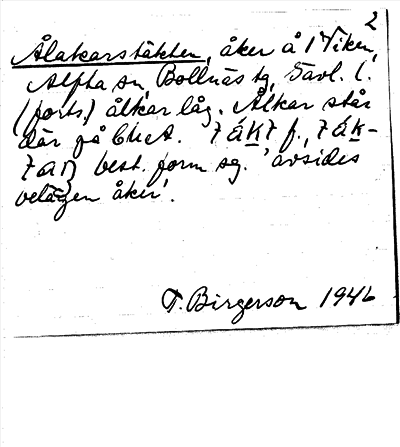 2
Ålakarstäkten, åker å 1 Viken,
Alfta sn, Bollnäs tg, Gävl. l.
(forts.) ålkar låg. Ålkar står
där på ... f.,
best. form sg. 'avsides
belägen åker'.
T. Birgerson 1946